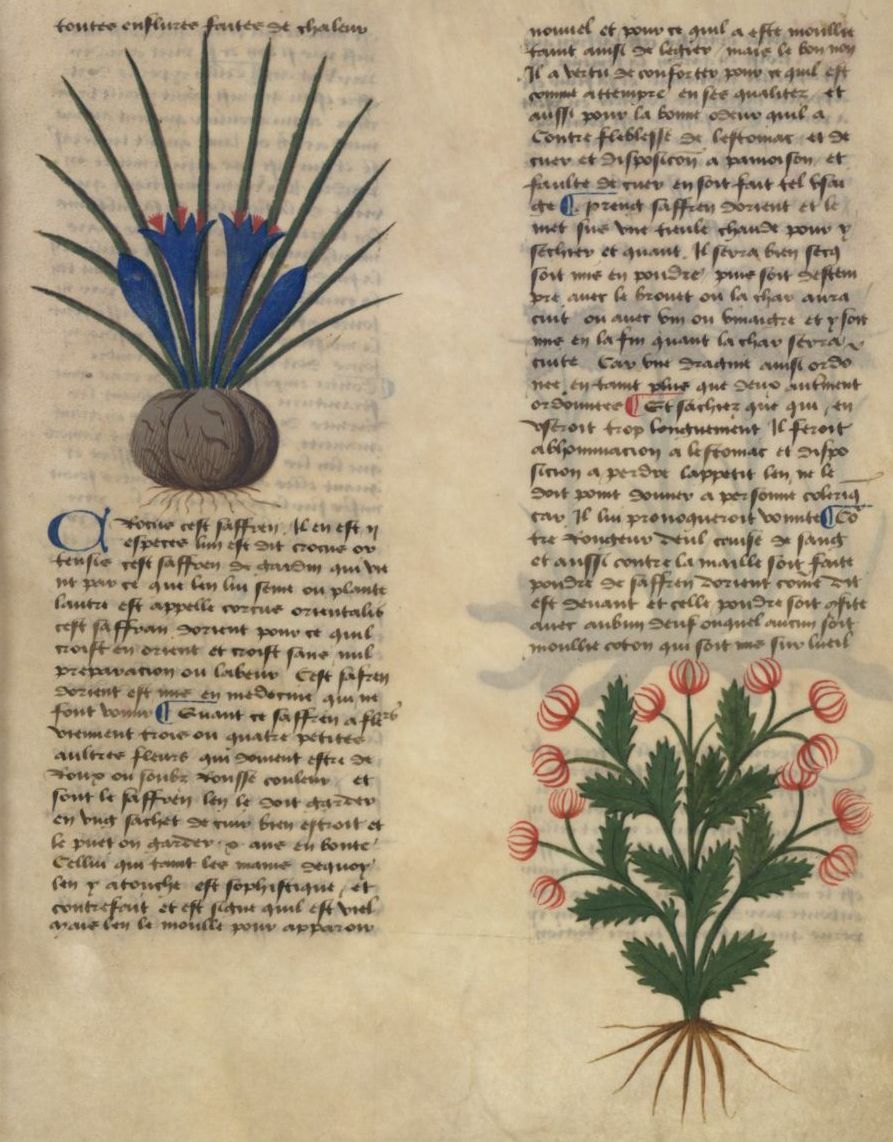 toutes enflures faites de chaleur
Crocus cest saffren. Il en est ij
especes lun est dit crocus or
tensis cest saffren de gardin qui vie
nt par ce que len lui seme ou plante
lautre est appelle corcus orientalis
cest saffran dorient pour ce quil
croist en orient et croist sans nul
preparacion ou labeur Cest safren
dorient est mis en medecine qui ne
font vomir ¶ Quant ce saffren a fleurs
viennent trois ou quatre petites
aultres fleurs qui doivent estre de
roux ou soubz rousse couleur et
sont le saffren len le doit garder
en ung sachet de cuir bien estroit et
le puet on garder x ans en bonte
Cellui qui taint les mains dequoy
len y atouche est sophistique et
contrefait et est signe quil est viel
mais len le moulle pour apparoir
nouvel et pour ce quil a este moullie
taint ainsi de legier mais le bon non
Il a vertu de conforter pour ce quil est
comme attempre en ses qualitez et
aussi pour la bonne odeur quil a
Contre fleblesse de lestomac et de
cuer et disposicon a pamoison et
faulte de cuer en soit fait tel usai
ge ¶ preng saffren dorient et le
met sus une tieule chaude pour y
sechier et quant Il sera bien secq
soit mis en poudre puis soit destem
pre avec le brouet ou la char aura
cuit ou avec vin ou vinaigre et y soit
mis en la fin quant la char sera
cuite Car une dragme ainsi ordo
nee en taint plus que deux aultment
ordonnees ¶ Et sachiez que qui en
useroit trop longuement Il feroit
abhominacion a lestomac et dispo
sicion a perdre lappetit len ne le
doit point donner a personne coleriq
car Il lui provoqueroit vomite ¶ Co
tre rongeur deul cause de sang
et aussi contre la maille soit faite
poudre de saffren dorient come dit
est devant et celle poudre soit ofite
avec aubun deuf ouquel aucun soit
moullie coton qui soit mis sur lueil